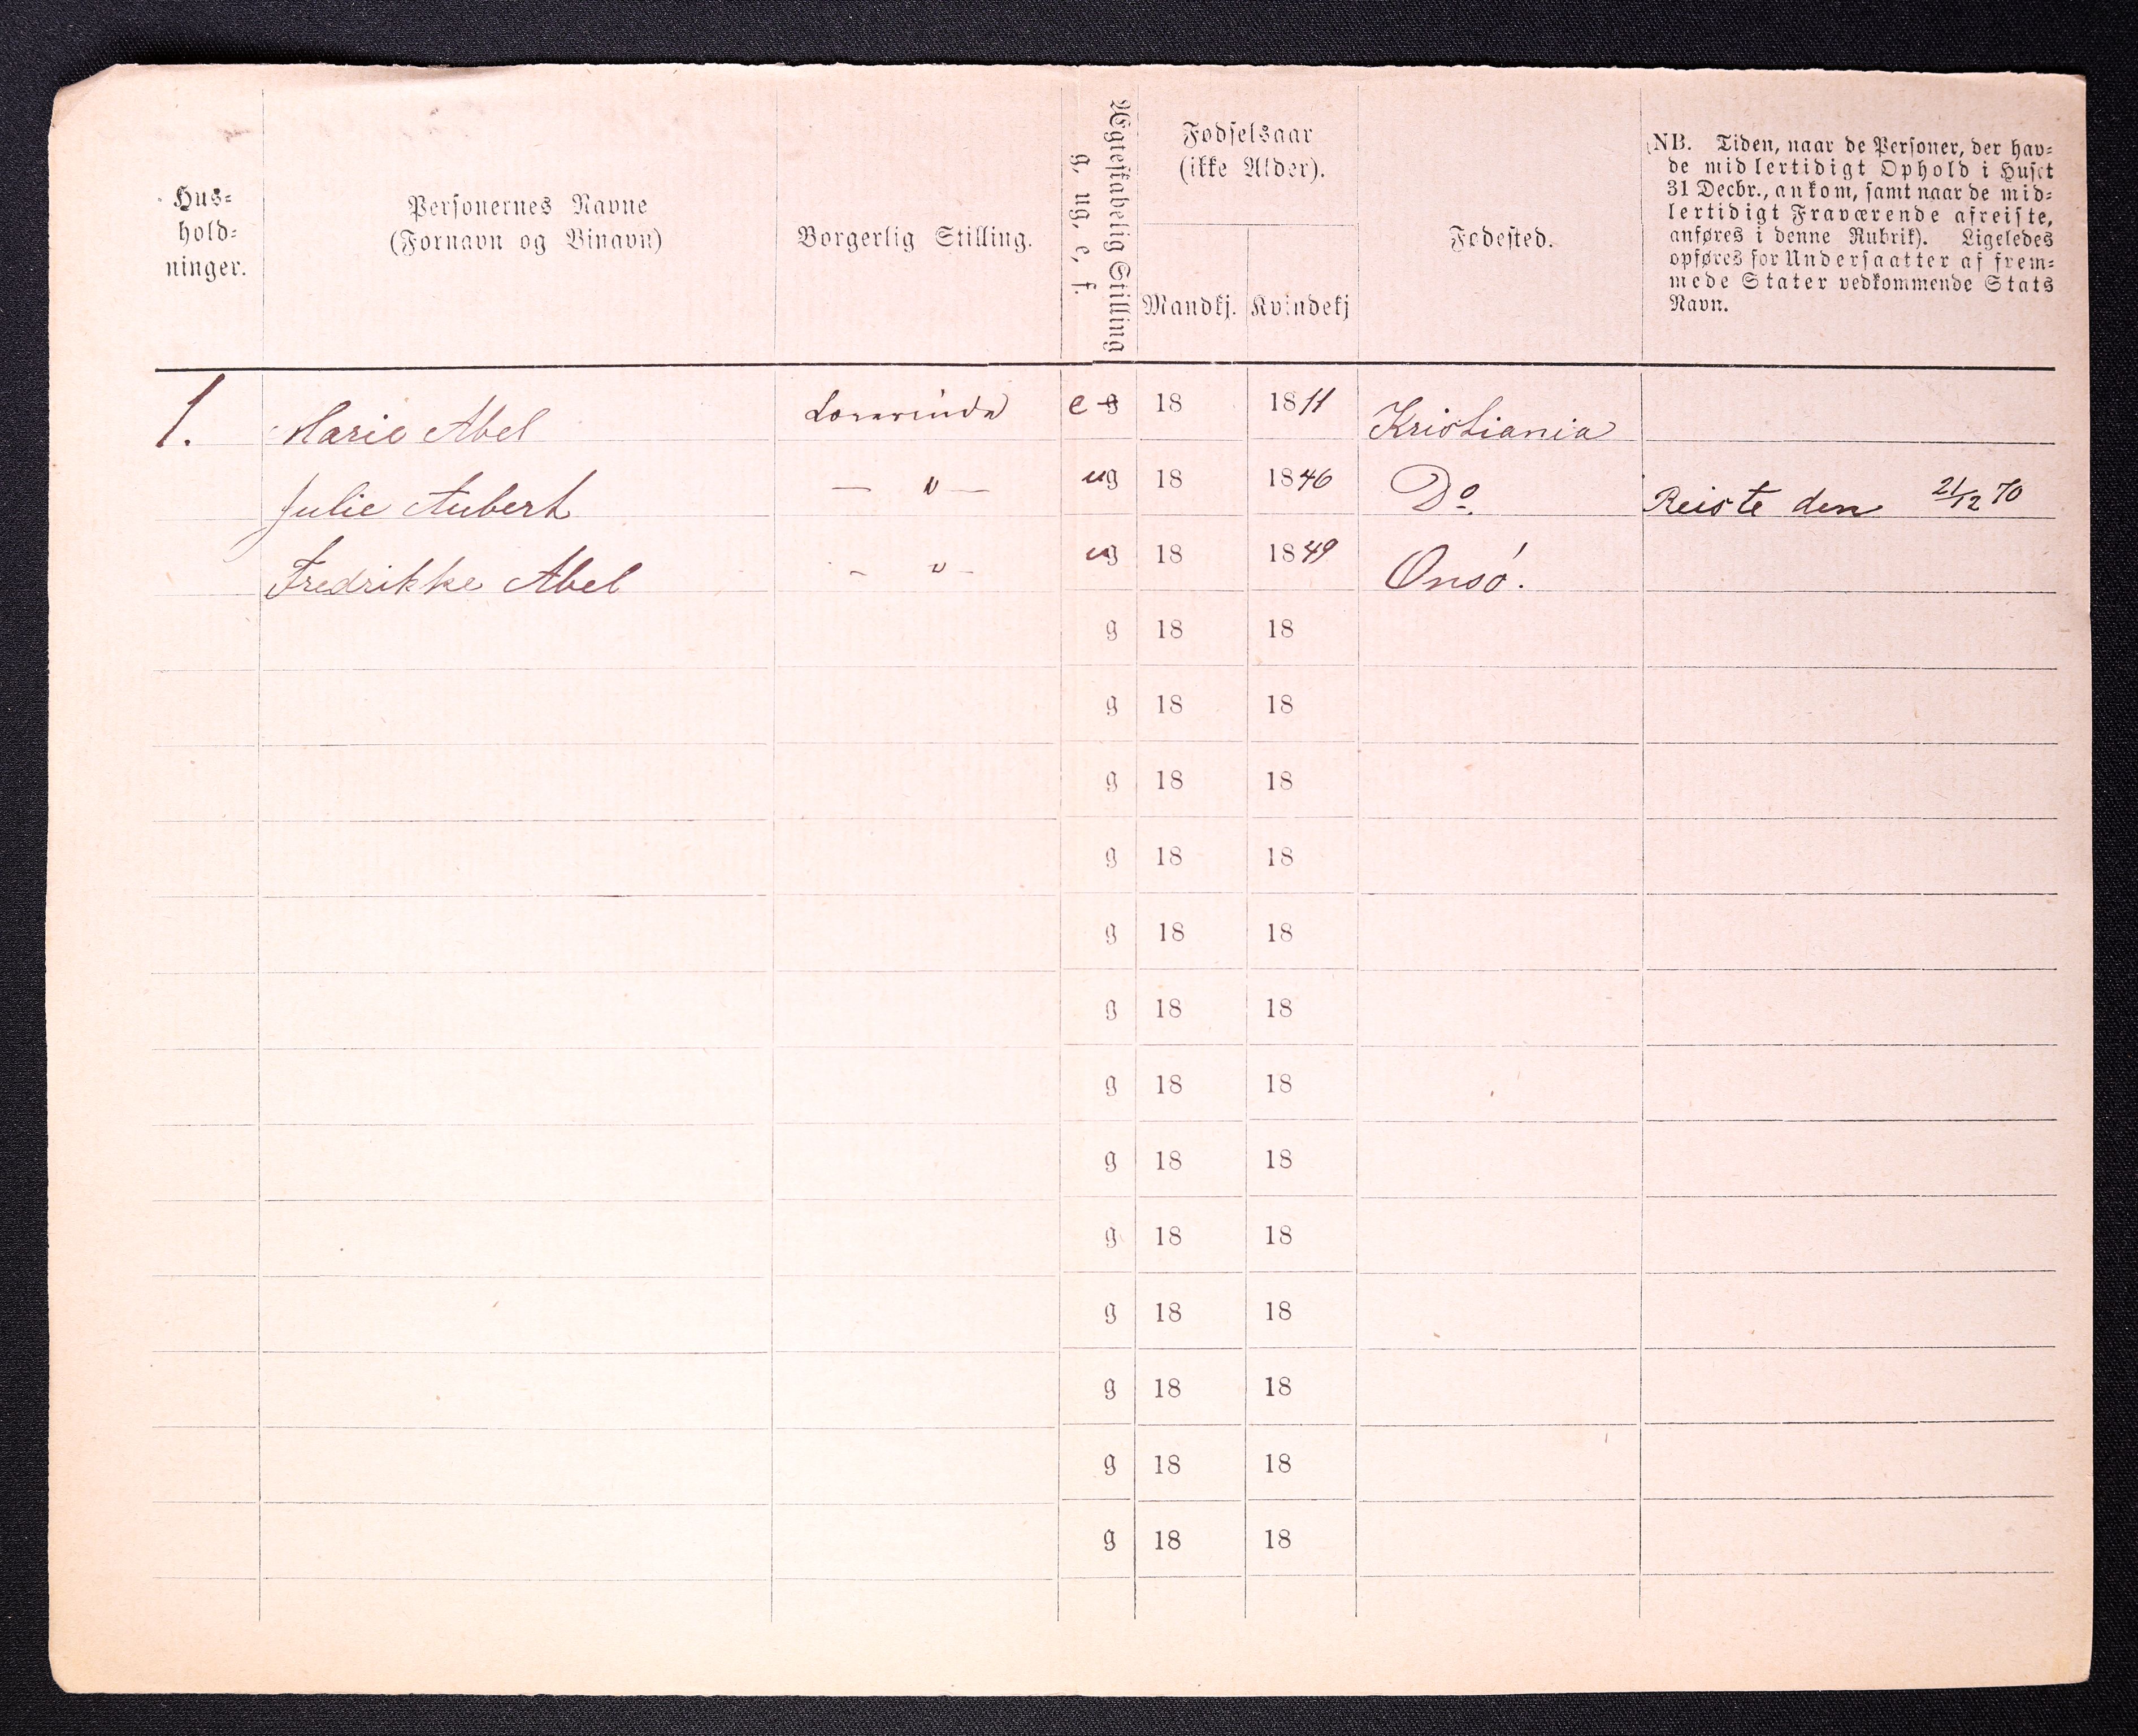 Hus-
hold-
ninger.
Personernes Navne
(Fornavn og Binavn)
Borgerlig Stilling.
Ægteskabelig Stilling
g, ug, e, f.
Fødselsaar
(ikke Alder).
Mandkj. Kvindekj
Fødested.
NB. Tiden, naar de Personer, der hav-
de midlertidigt Ophold i Huset
31 Decbr., ankom, samt naar de mid-
lertidigt Fraværende afreiste,
anføres i denne Rubrik). Ligeledes
opføres for Undersaatter af frem-
mede Stater vedkommende Stats
Navn.
1. Marie Abel Lærerinde e g 18 1811 Kristiania
Julie Aubert — " — ug 18 1846 Do. Reiste den 21/12 70
Fredrikke Abel - " - ug 18 1849 Onsö.
g 18 18
g 18 18
g 18 18
g 18 18
g 18 18
g 18 18
g 18 18
g 18 18
g 18 18
g 18 18
g 18 18
g 18 18
g 18 18